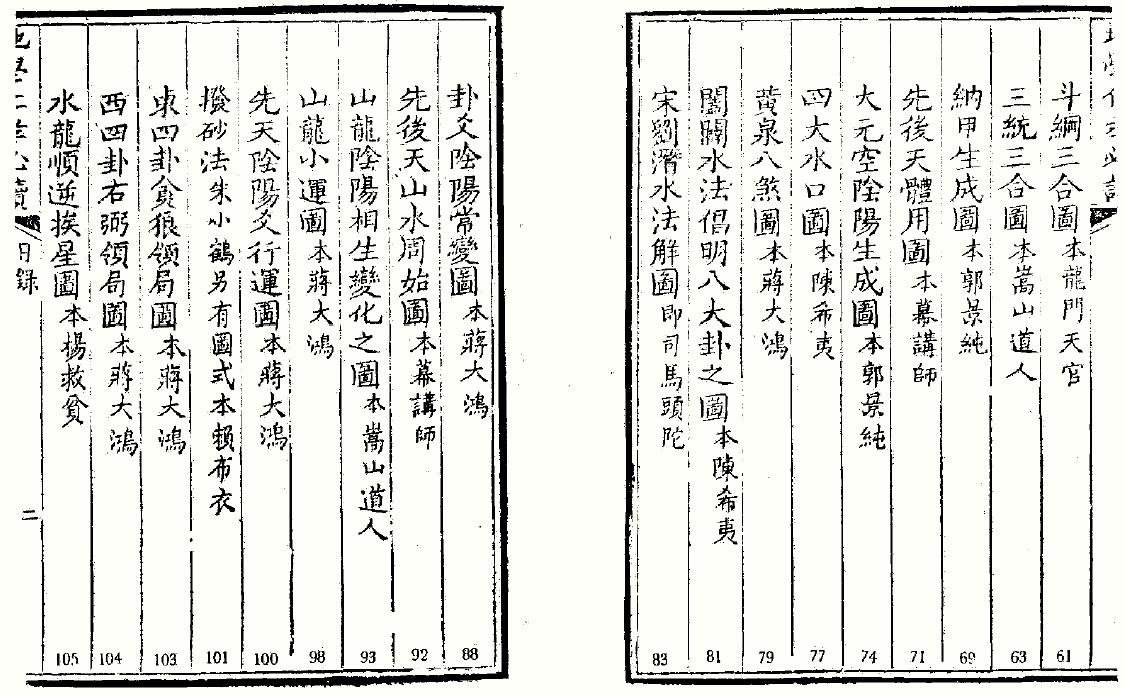 斗綱三合圖本龍門天官 61
三統三合圖本嵩山道人 63
納甲生成圖本郭景純 69
先後天體用圖本幕講師 71
大元空陰陽生成圖本郭景純 74
四大水口圖本陳希夷 77
黄泉八煞圖本蔣大鴻 79
闔闢水法倡明八大卦之圖本陳希夷 81
宋劉潛水法解圖即司馬頭陀 83
卦爻陰陽常變圖本蔣大鴻 88
先後天山水周始圖本幕講師 92
山龍陰陽相生變化之圖本嵩山道人 93
山龍小運圖本蔣大鴻 98
先天陰陽爻行運圖本蔣大鴻 100
撥砂法朱小鶴另有圖式本賴布衣 101
東四卦貪狼領局圖本蔣大鴻 103
西四卦右弼領局圖本蔣大鴻 104
水龍順逆挨星圖本楊救貧 105
必讀 目錄 二